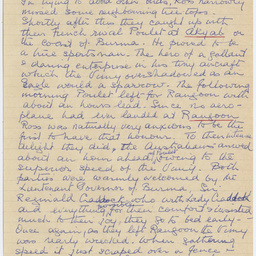 in trying to avoid open drains, Ross narrowly
missed some neighbouring rice
Shortly after this they caught up with
their French rival Poulet at Akyab on
the coast of Burma. He proved to be
a nice sportsman. The hero of a gallant
& daring enterprise in his tiny aircraft
which the Vimy overshadowed as an
Eagle would a sparrow. The following
morning Poulet left for Rangoon with
about an hours lead. Since no aero-
plane had ever landed at Rangoon
Ross was naturally very anxious to be the
first to have that honour. To their
delight they did, the Australians arrived
about an hour ahead of Poulet owing to the
superior speed of the Vimy. Both
parties were warmly welcomed by the
Lieutenant Governor of Burma, Sir
Reginald Craddock, who with Lady Craddock
and everything for their comfort &
much to their joy they go to bed early -
Once again, as they left Rangoon the Vimy
was nearly wrecked. When gathering
speed it just scraped over a fence -